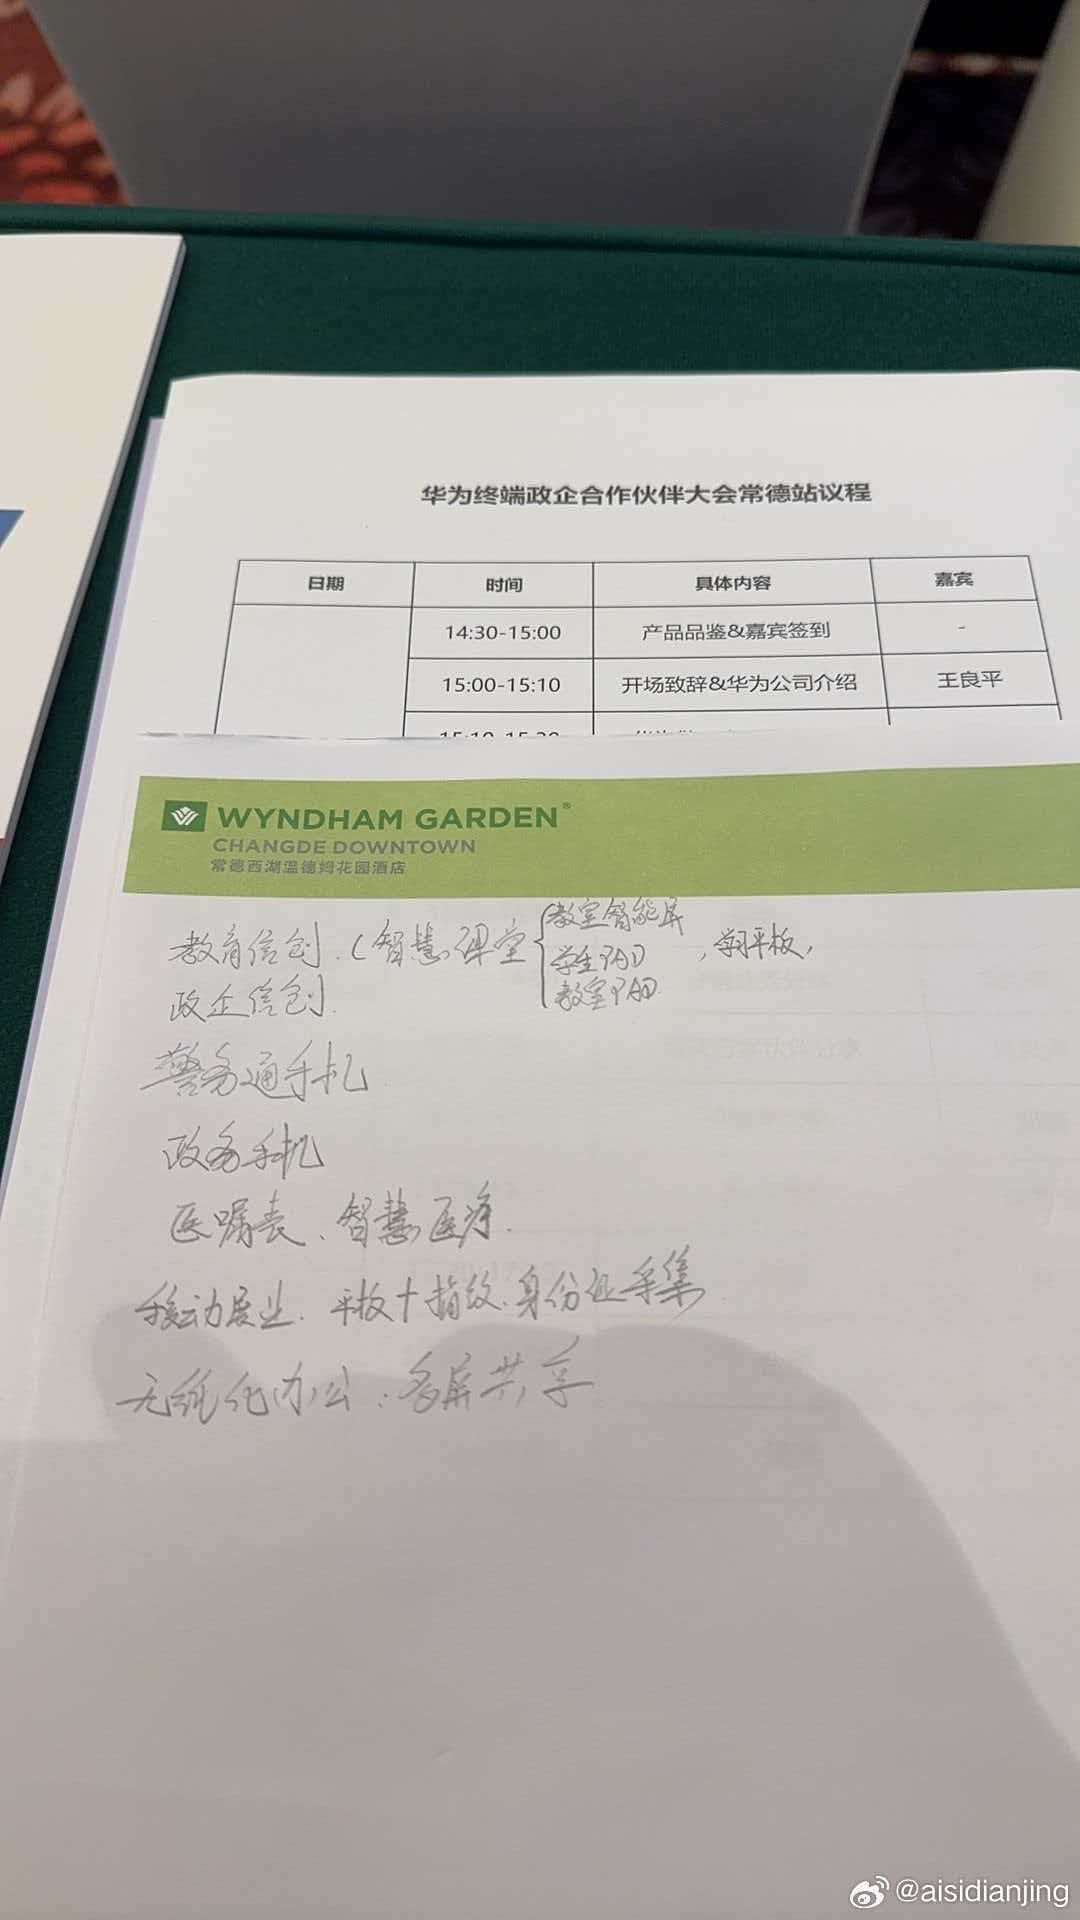 华为终端政企合作伙伴大会常德站议程
日期 时间 具体内容 嘉宾
14:30-15:00 产品品鉴&嘉宾签到 -
15:00-15:10 开场致辞&华为公司介绍 王良平
15:10-15:30
WYNDHAM GARDEN®
CHANGDE DOWNTOWN
常德西湖温德姆花园酒店
教育信创.(智慧课堂 教室智能屏
学生PAD
教室PAD
,平板,
政企信创.
警务通手机
政务手机
医嘱表、智慧医疗.
移动展业.平板+指纹、身份证采集
无纸化办公.多屏共享
@aisidianjing